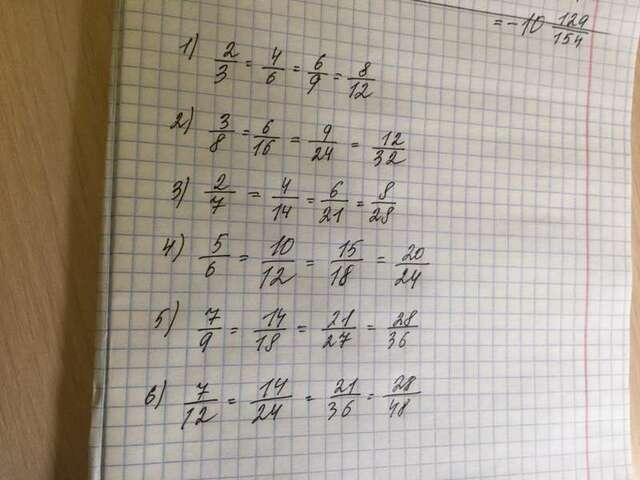 = -10 129/154
1) 2/3 = 4/6 = 6/9 = 8/12
2) 3/8 = 6/16 = 9/24 = 12/32
3) 2/7 = 4/14 = 6/21 = 8/28
4) 5/6 = 10/12 = 15/18 = 20/24
5) 7/9 = 14/18 = 21/27 = 28/36
6) 7/12 = 14/24 = 21/36 = 28/48